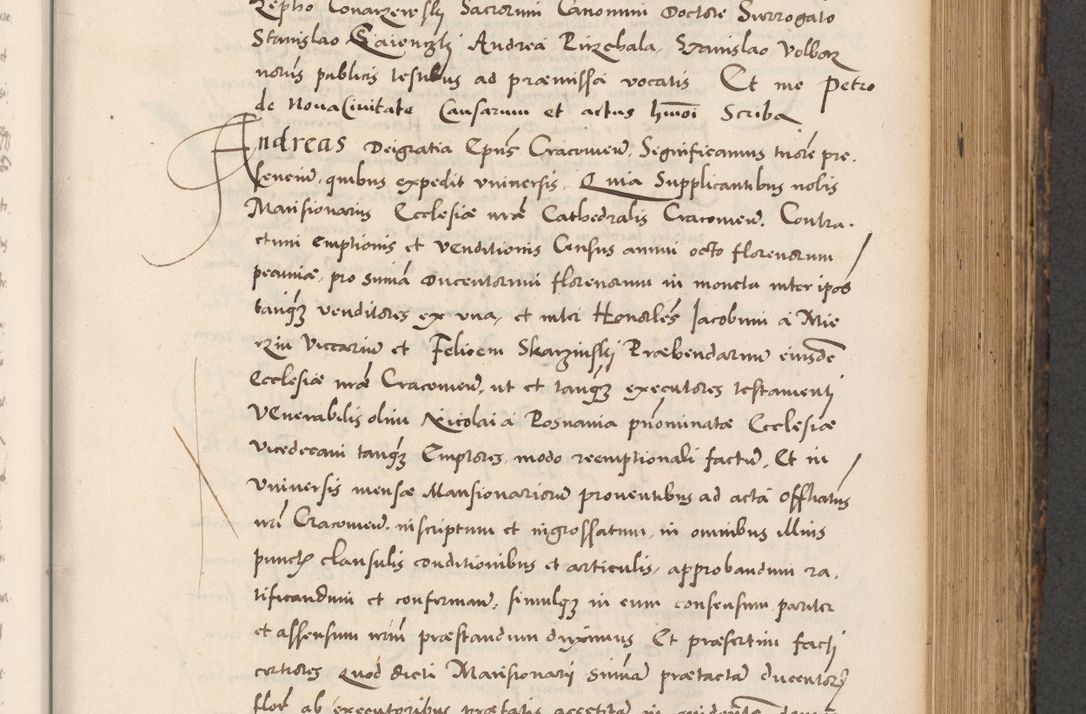 Zepho Conarzewskj Sacrorum Canonum Doctore Surrogato
Stanislao Gaienczkj Andrea Rizchala, Stanislao Volborz
notariis publicis testibus ad præmissa vocatis Et me Petro
de Nova Civitate Causarum et actus hmoi Scriba
Andreas Dei gratia Epūs Cracovien. Significamus tenore pre,
sentium, quibus expedit vniversis. Quia Supplicantibus nobis
Mansionariis Ecclesiæ nræ Cathedralis Cracovien. Contra,
ctum emptionis et venditionis Census annui octo florenorum
pecuniæ, pro summa ducentorum florenorum in moneta inter ipsos
tanq3 venditores ex vna, et inter Honorles Jacobum à Mie
rzin Viccarium et Felicem Skarzinskj Præbendarium eiusdem
Ecclesiæ nræ Cracovien. ut et tanq3 executores testamenti
Venerabilis olim Nicolai à Posnania pnominatæ Ecclesiæ
vicedecani tanq3 Emptores, modo reemptionali factum, Et in
vniversis mensæ Mansionariorum proventibus ad acta Offliatus
nri Cracovien. inscriptum et ingrossatum, in omnibus illius
punctis clausulis conditionibus et articulis, approbandum ra,
tificandum et confirman, simulq3 in eum consensum pariter
et assensum nrm præstandum duximus Et præsertim facti
certiores Quod dicti Mansionarii Summa prætacta ducentor
flor ab executoribus prætatis accepta in